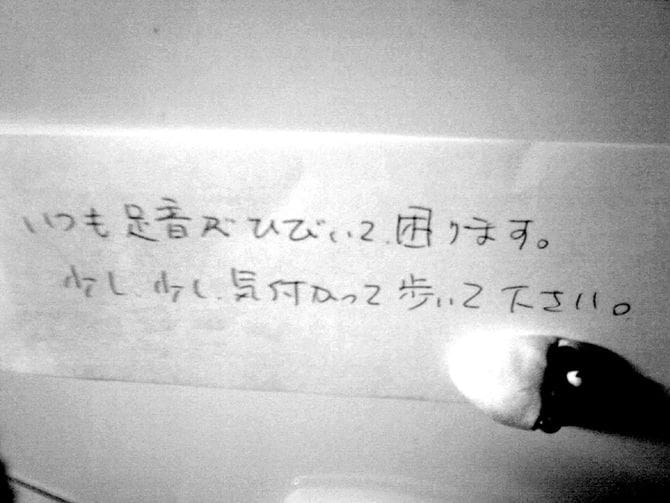 いつも足音がひびいて、困ります。
少し、少し、気付かって歩いて下さい。